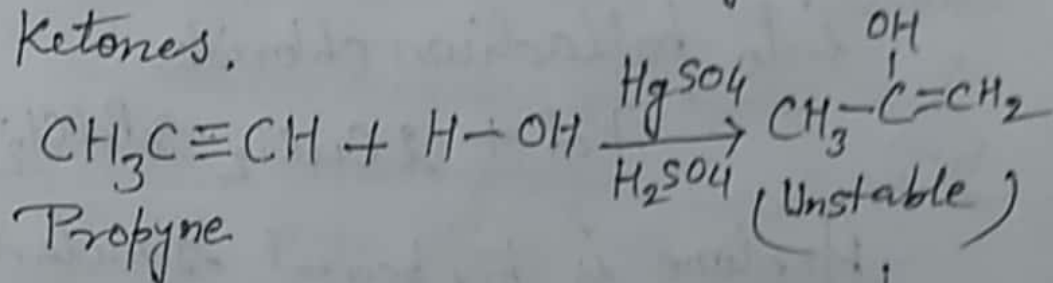 Ketones.
OH
CH₃C≡CH + H–OH HgSO4 → H₂SO4 CH₃–C=CH₂
Propyne (Unstable)